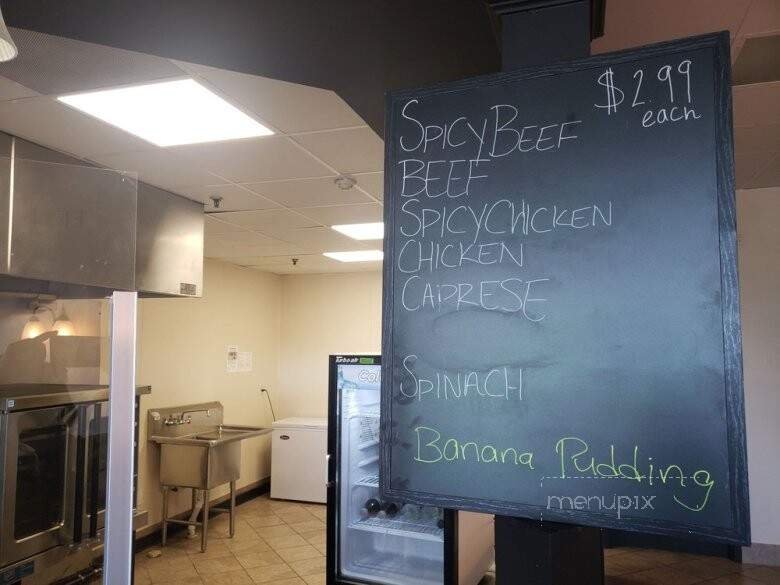 $2.99
each
SPICY BEEF
BEEF
SPICY CHICKEN
CHICKEN
CAPRESE
SPINACH
Banana Pudding
Turbo air
menupix